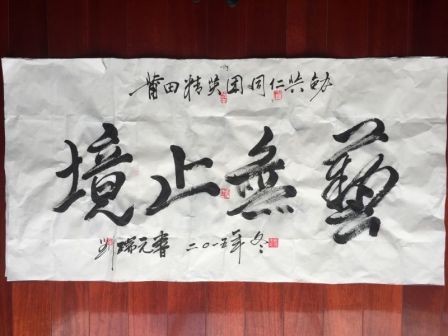 莆田精英团同仁共勉
藝無止境
刘瑞元書 二〇一五年冬